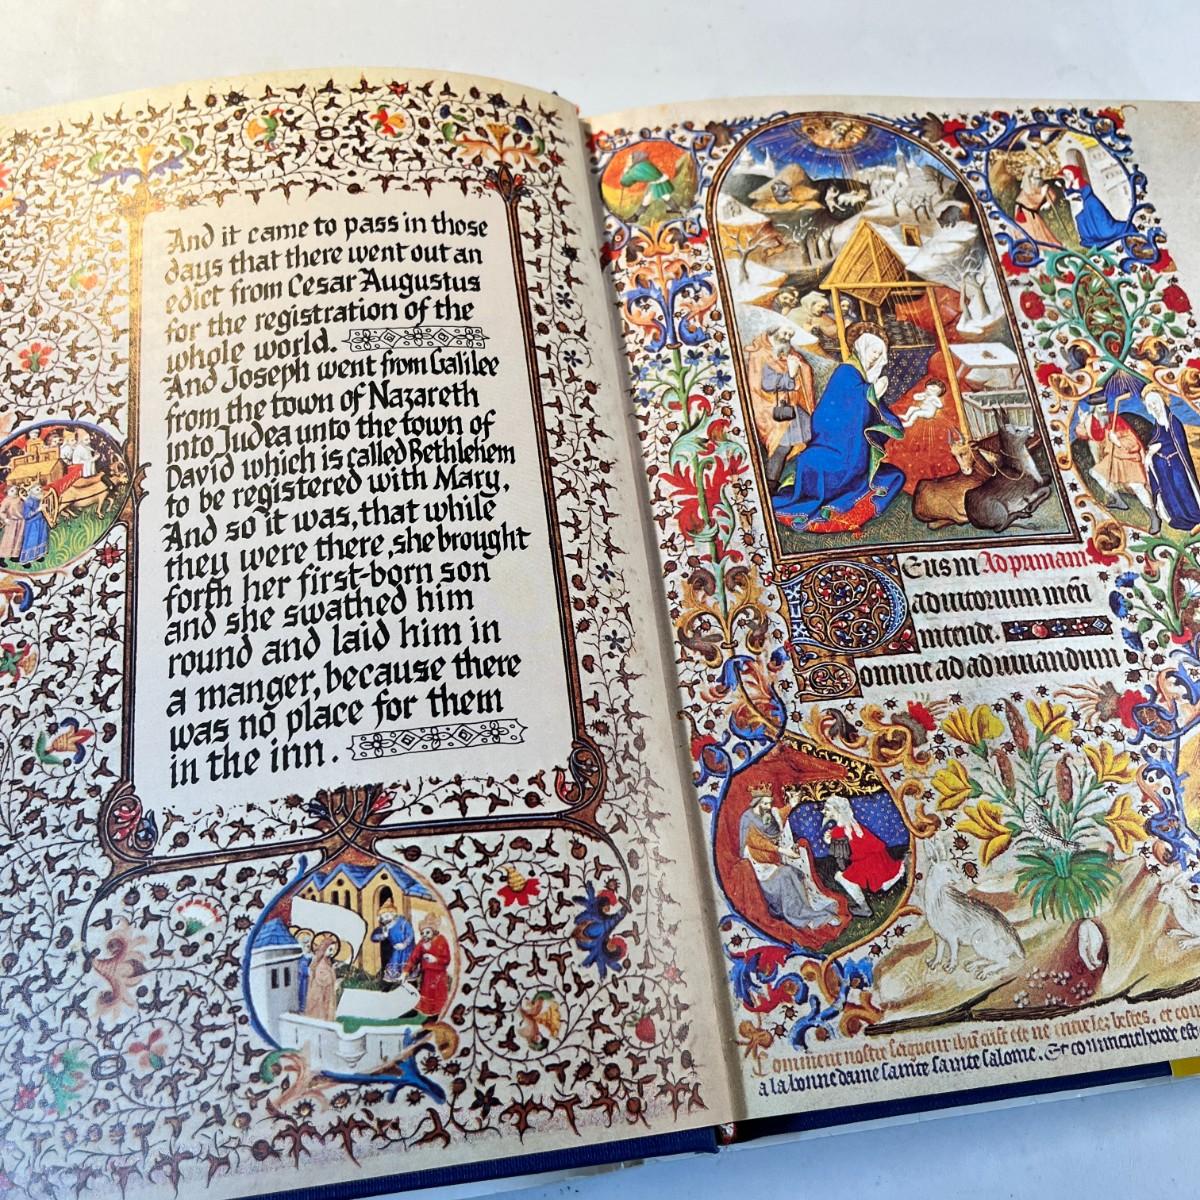 And it came to pass in those
days that there went out an
edict from Cesar Augustus
for the registration of the
whole world.
And Joseph went from Galilee
from the town of Nazareth
into Judea unto the town of
David which is called Bethlehem
to be registered with Mary,
And so it was, that while
they were there, she brought
forth her first-born son
and she swathed him
round and laid him in
a manger, because there
was no place for them
in the inn.
Deus in Ad primam
adiutorium meū
intende.
Domine ad adiuuandum
Comment nostre seigneur ihū crist est ne entre les bestes. et
a la bonne dame sainte sainte salome. Et comment